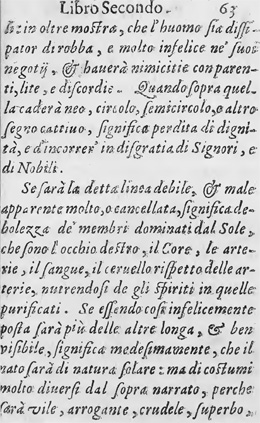 Libro Secondo. 63
in oltre mostra, che l'huomo sia dissi-
pator di robba, e molto infelice ne' suoi
negotij, & hauerà nimicitie con paren-
ti, lite, e discordie. Quando sopra quel-
la caderà neo, circolo, semicircolo, o altro
segno cattiuo, significa perdita di digni-
tà, e d'incorrer' in disgratia di Signori, e
di Nobili.
Se sarà la detta linea debile, & male
apparente molto, o cancellata, significa de-
bolezza de' membri dominati dal Sole,
che sono l'occhio destro, il Core, le arte-
rie, il sangue, il ceruello rispetto delle ar-
terie, nutrendosi de gli spiriti in quelle
purificati. Se essendo così infelicemente
posta sarà più delle altre longa, & ben
visibile, significa medesimamente, che il
nato sarà di natura solare: ma di costumi
molto diuersi dal sopra narrato, perche
sarà vile, arrogante, crudele, superbo,